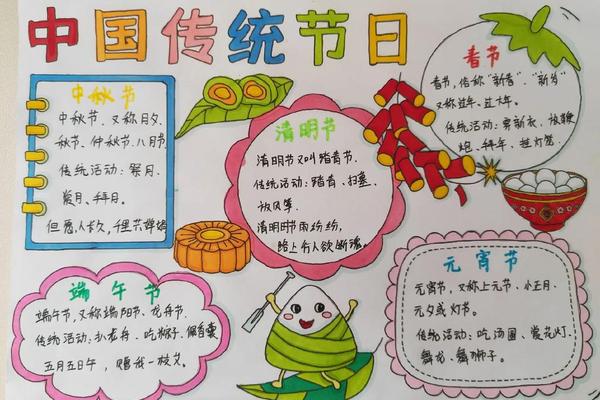 中国传统节日
中秋节
中秋节、又称月夕、
秋节、仲秋节、八月节
传统活动：祭月、
赏月、拜月。
但愿人长久，千里共婵娟
清明节
清明节又叫踏青节.
传统活动：踏青、扫墓、
放风筝.
清明时节雨纷纷，
路上行人欲断魂。
春节
春节，俗称“新春”、“新岁”
又称过年、过大年。
传统活动：穿新衣、放鞭
炮、拜年、挂灯笼.
端午节
端午节，又称端阳节、龙舟节.
传统活动：扒龙舟、吃粽子、佩香囊
五月五日午，赠我一枝艾。
元宵节
元宵节，又称上元节、小正月、
元夕或灯节。
传统活动：吃汤圆、赏花灯.
舞龙、舞狮子。